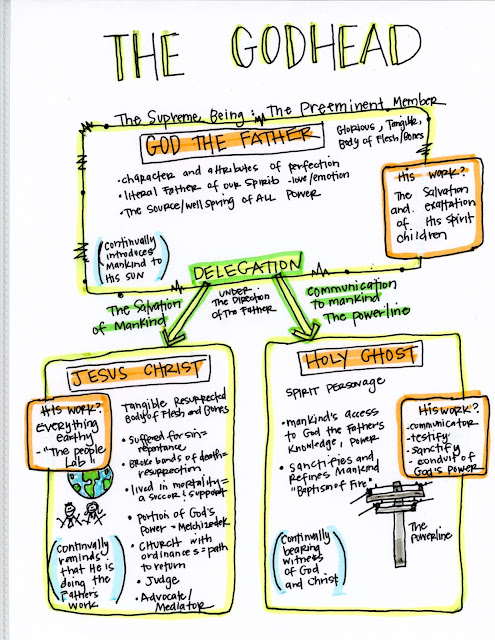 THE GODHEAD
The Supreme Being: The Preeminent Member
GOD THE FATHER
Glorious, Tangible,
Body of Flesh/Bones
• character and attributes of perfection
• literal Father of our Spirits - love/emotion
• The source/wellspring of ALL Power
His work?
The Salvation
and exaltation
of His spirit
children
(continually
introduces
Mankind to
His SUN)
DELEGATION
The Salvation
of Mankind
UNDER
The Direction
of The Father
communication
to mankind
The powerline
JESUS CHRIST
HIS WORK?
Everything
earthy
- "The people
Lab"
Tangible Resurrected
Body of Flesh and Bones
• suffered for sin =
repentance
• Broke bands of death =
resurrection
• lived in mortality =
a succor & support
• Portion of God's
power - Melchizedek
• CHURCH with
ordinances = path
to return
• Judge
• Advocate/
Mediator
(continually
reminds
that He is
doing the
Fathers
work)
HOLY GHOST
SPIRIT PERSONAGE
• mankind's access
to God the Father's
Knowledge, Power
• sanctifies and
Refines Mankind
"Baptism of Fire"
His work?
- communicator
- testify
- sanctify
conduit of
God's Power
The
Powerline
(continually
bearing
witness
of God
and Christ)